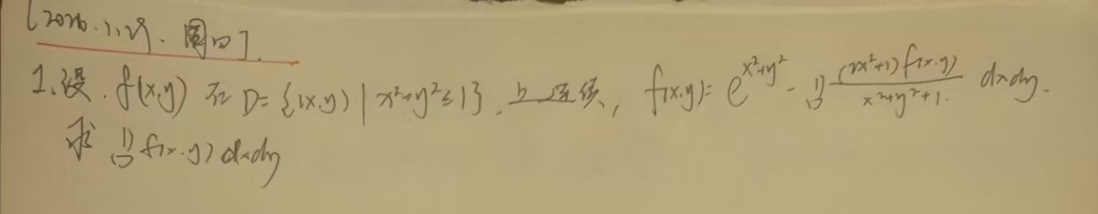 [2026.1.29. 周四].
1.设. f(x,y) 在 D={(x,y) | x²+y²≤1}. 上连续, f(x,y)= e^{x²+y²} - ∬_D \frac{(2x²+1)f(x,y)}{x²+y²+1} dxdy.
求 ∬_D f(x,y)dxdy